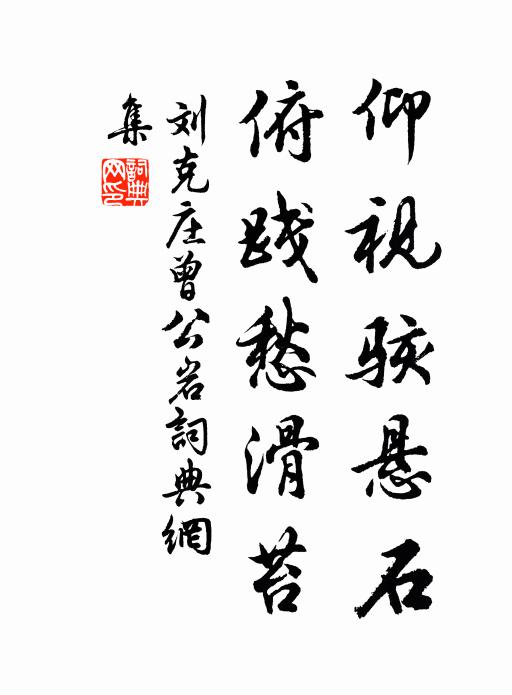 仰视骇悬石
俯践愁滑苔
刘克庄曾公岩詞典網
集
詞典网印